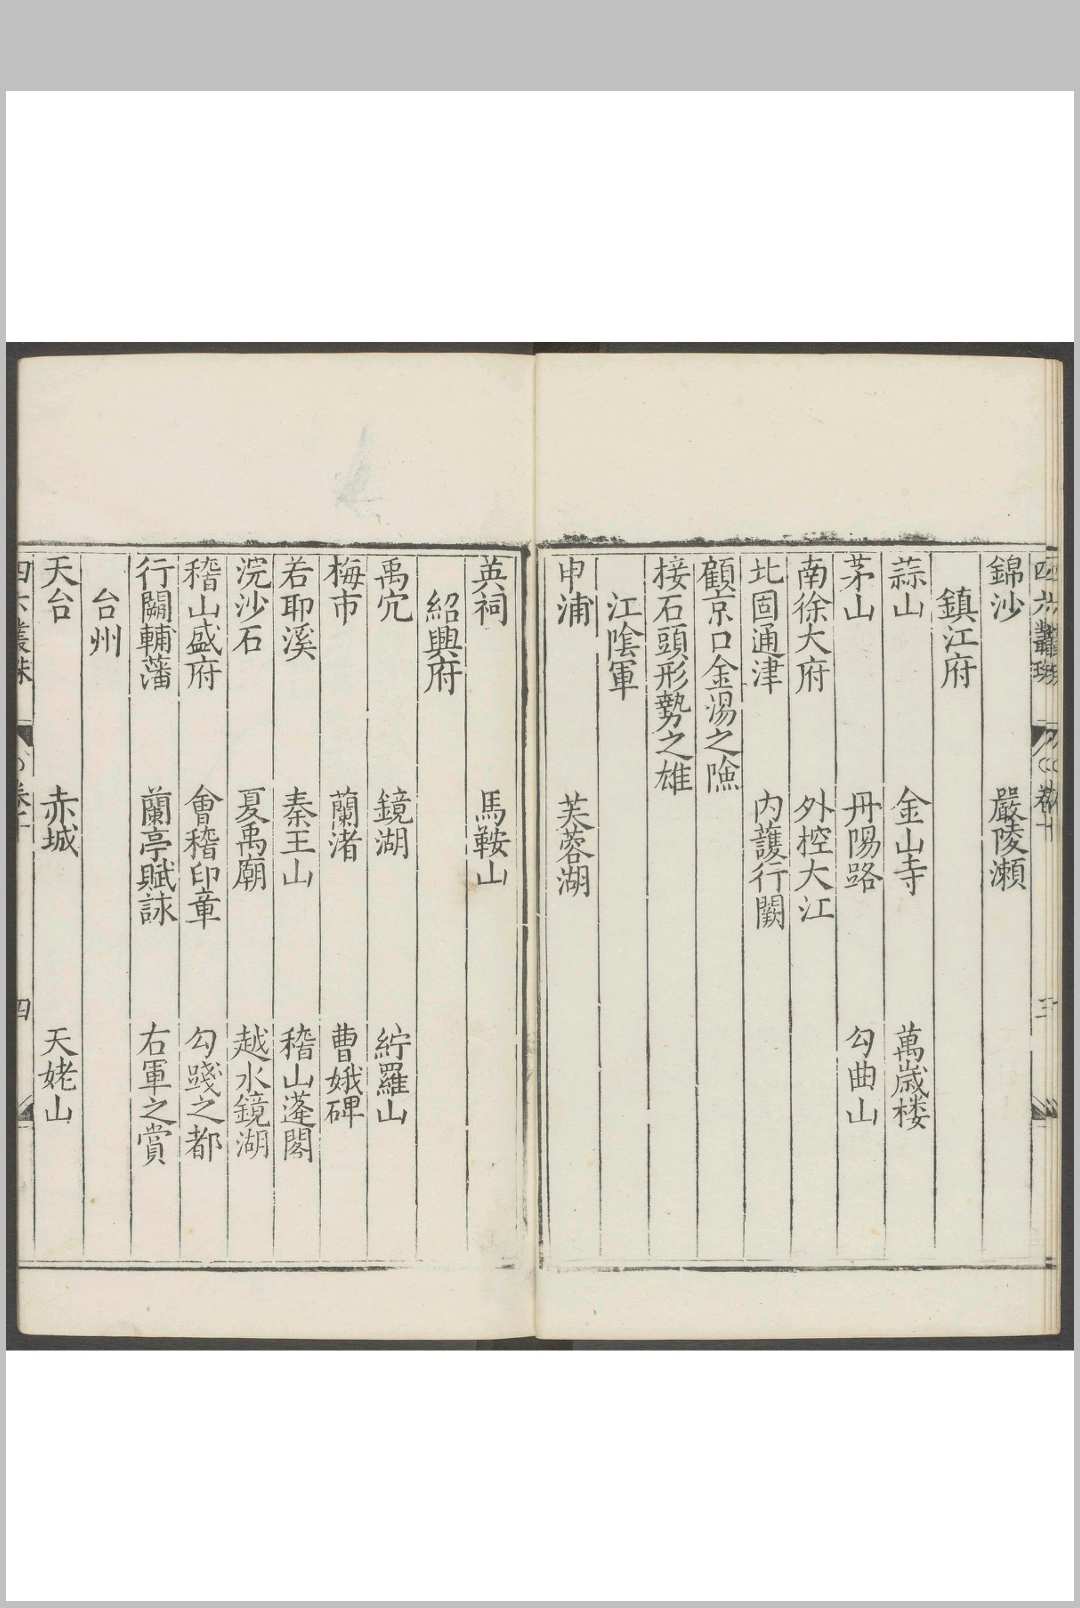 四六叢珠 卷十 三
錦沙 嚴陵瀨
鎮江府
蒜山 金山寺 萬歲楼
茅山 丹陽路 勾曲山
南徐大府 外控大江
北固通津 內護行闕
顧京口金湯之險
接石頭形勢之雄
江陰軍
申浦 芙蓉湖
英祠 馬鞍山
紹興府
禹穴 鏡湖 紵羅山
梅市 蘭渚 曹娥碑
若耶溪 秦王山 稽山蓬閣
浣沙石 夏禹廟 越水鏡湖
稽山盛府 會稽印章 勾踐之都
行闕輔藩 蘭亭賦詠 右軍之賞
台州
天台 赤城 天姥山
四六叢珠 卷十 四